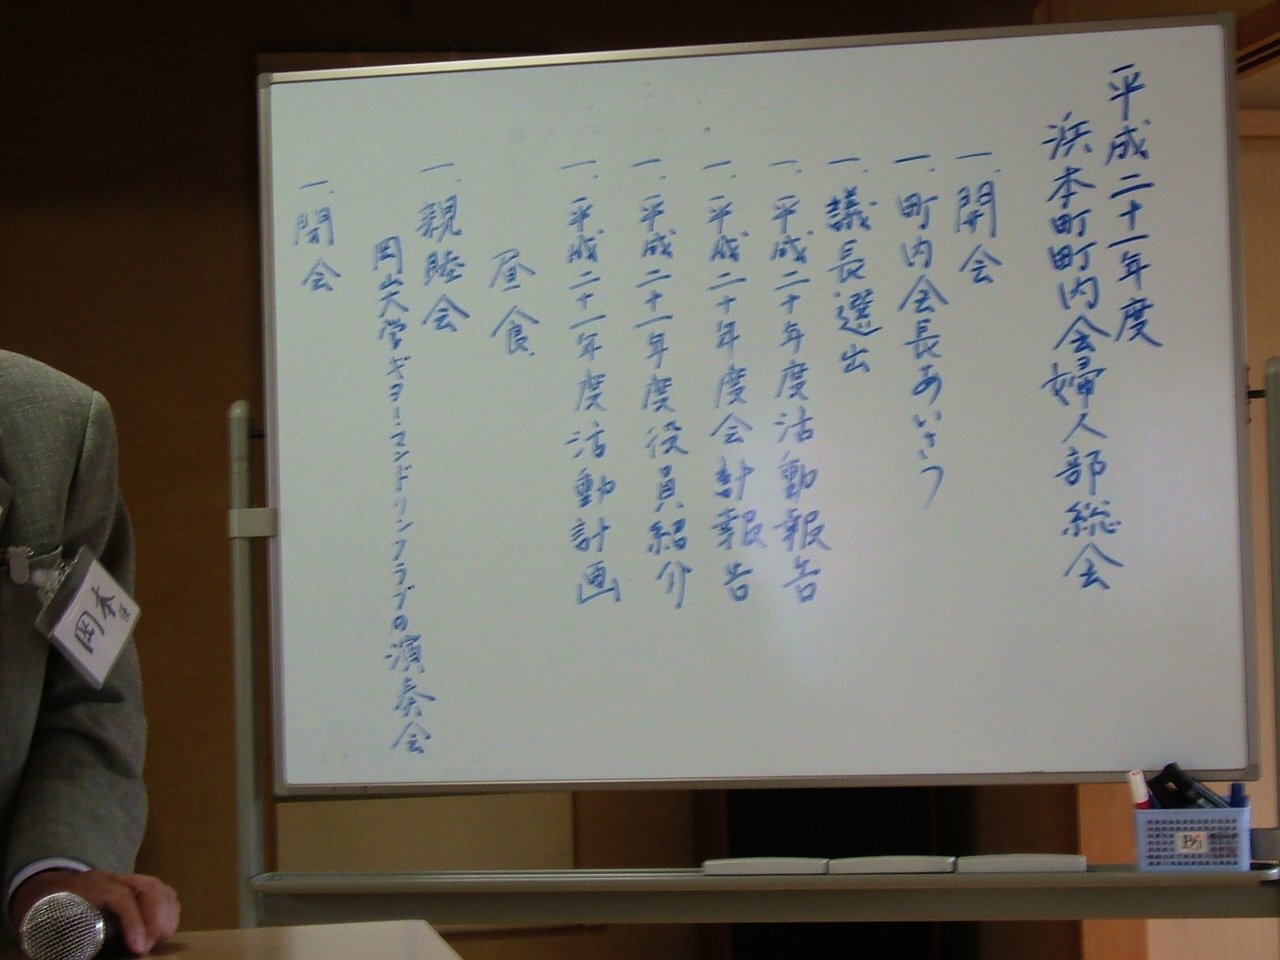 平成二十一年度
浜本町町内会婦人部総会
一、開会
一、町内会長あいさつ
一、議長選出
一、平成二十年度活動報告
一、平成二十年度会計報告
一、平成二十一年度役員紹介
一、平成二十一年度活動計画
昼食
一、親睦会
岡山大学ギター・マンドリンクラブの演奏会
一、閉会
岡本